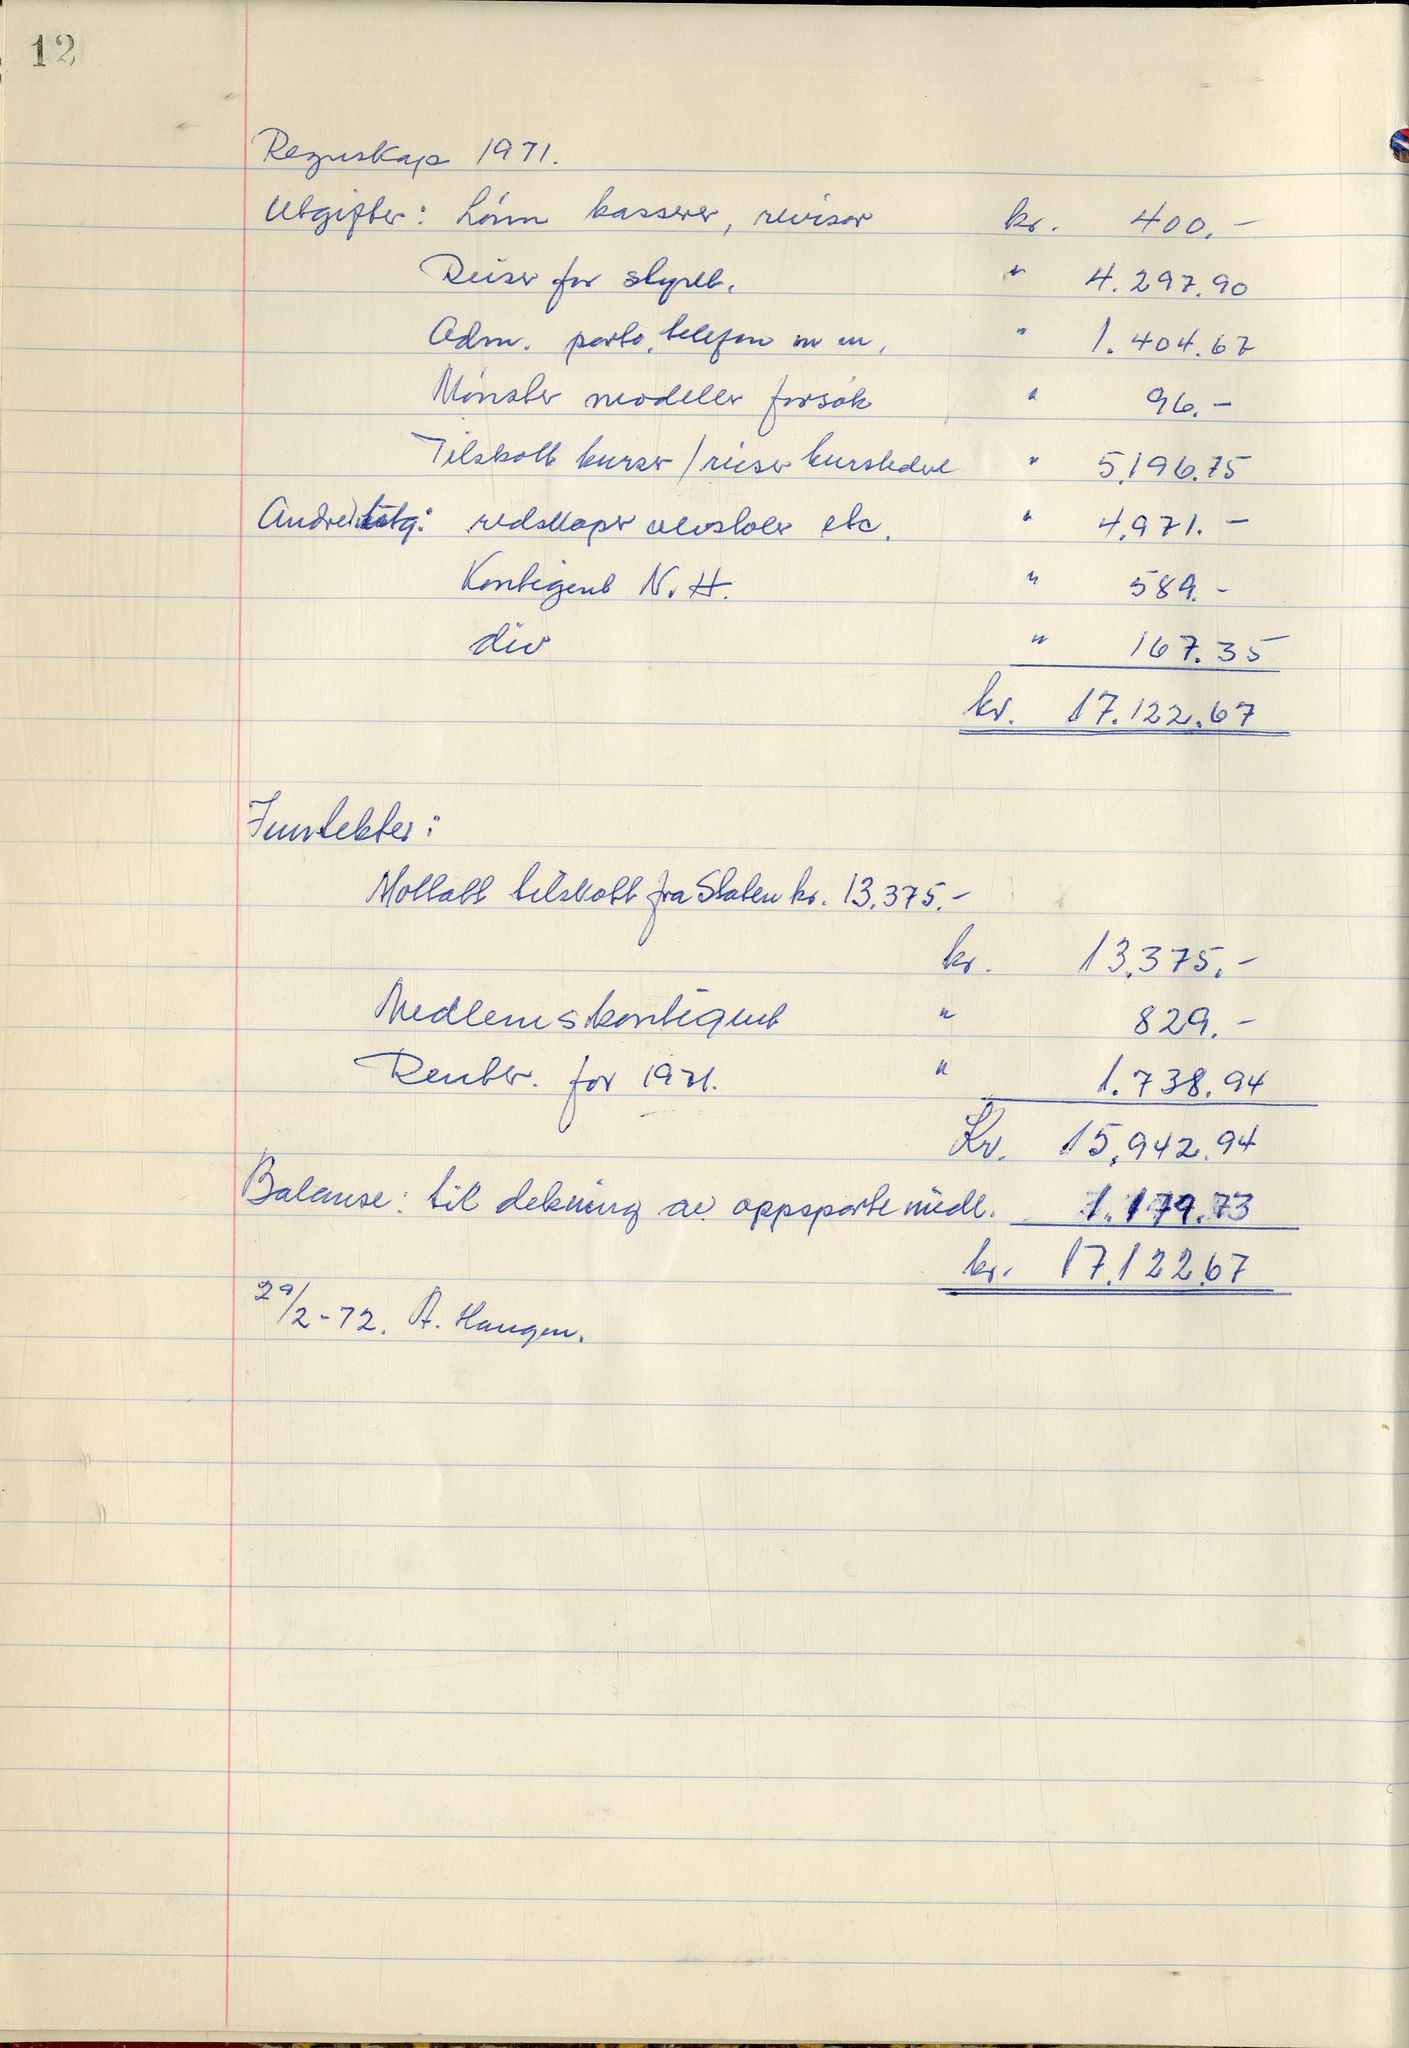 12
Regnskap 1971.
Utgifter: Lönn kasserer, revisor kr. 400.-
Reiser for styret. " 4.297.90
Adm. porto, telefon m m. " 1.404.67
Mönster modeller forsök " 96.-
Tilskott kurser / reiser kursledere " 5.196.75
Andre utg: redskaper vevstoler etc. " 4.971.-
Kontigent N.H. " 589.-
div " 167.35
kr. 17.122.67
Inntekter:
Mottatt tilskott fra Staten kr. 13.375.-
kr. 13.375.-
Medlemskontigent " 829.-
Renter. for 1971. " 1.738.94
Kr. 15.942.94
Balanse: til dekning av oppsparte midl. 1.179.73
kr. 17.122.67
29/2-72. A. Haugen.